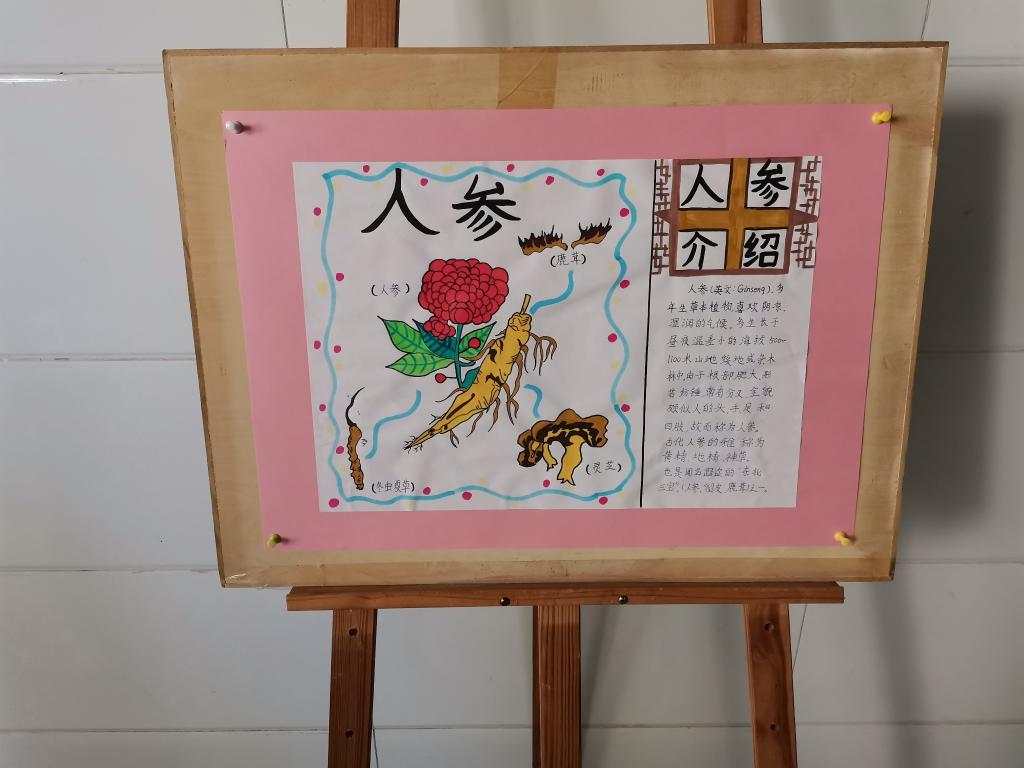 人参
(鹿茸)
(人参)
(灵芝)
(冬虫夏草)
人参
介绍
人参(英文:Ginseng),多
年生草本植物,喜欢阴凉、
湿润的气候,多生长于
昼夜温差小的海拔500~
1100米山地缓地或杂木
林中,由于根部肥大,形
若纺锤,常有分叉,全貌
颇似人的头、手、足和
四肢,故而称为人参。
古代人参的雅称为
黄精、地精、神草。
也是闻名遐迩的"东北
三宝"(人参、貂皮、鹿茸)之一。